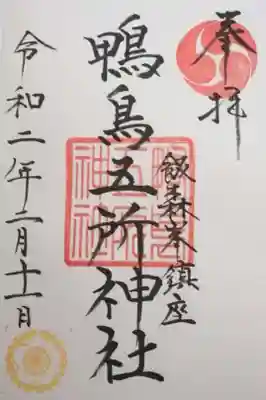 奉拝
飯森峯鎮座
鴨鳥五所神社
令和二年二月十一日